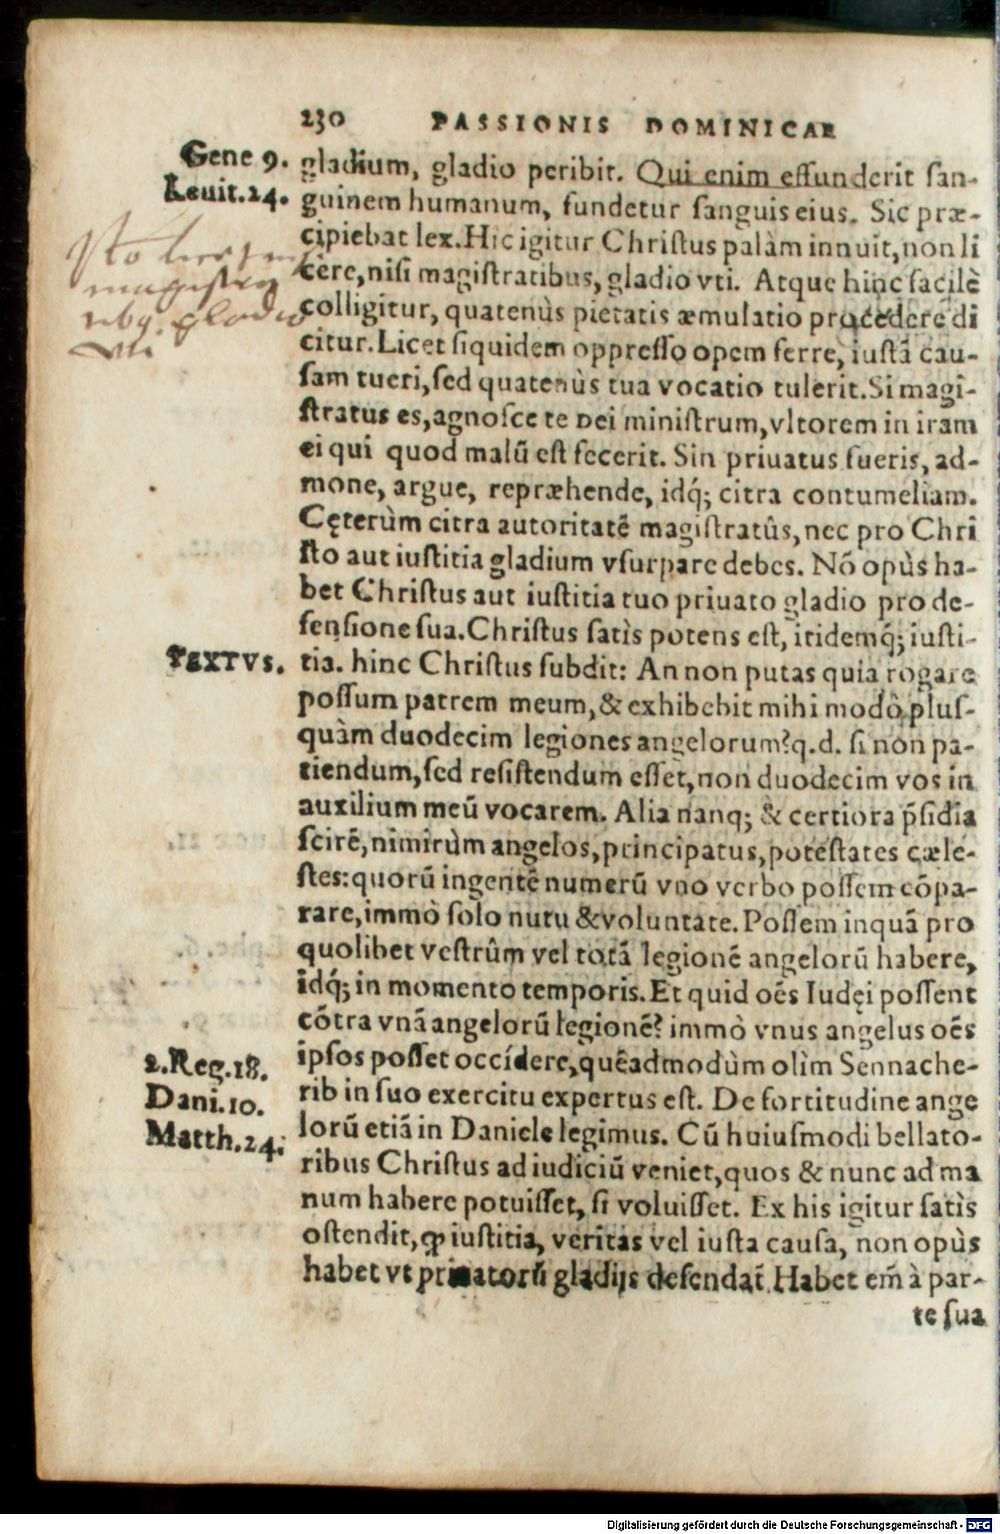 230 PASSIONIS DOMINICAE
Gene 9.
Leuit.24.
gladium, gladio peribit. Qui enim effunderit san-
guinem humanum, fundetur sanguis eius. Sic præ-
cipiebat lex. Hic igitur Christus palàm innuit, non li
cere, nisi magistratibus, gladio vti. Atque hinc facilè
colligitur, quatenùs pietatis æmulatio procedere di
citur. Licet siquidem oppresso opem ferre, iustā cau-
sam tueri, sed quatenùs tua vocatio tulerit. Si magi-
stratus es, agnosce te Dei ministrum, vltorem in iram
ei qui quod malū est fecerit. Sin priuatus fueris, ad-
mone, argue, repræhende, idq́; citra contumeliam.
Cęterùm citra autoritatē magistratûs, nec pro Chri
sto aut iustitia gladium vsurpare debes. Nō opùs ha-
bet Christus aut iustitia tuo priuato gladio pro de-
fensione sua. Christus satìs potens est, itidemq́; iusti-
TEXTVS.
tia. hinc Christus subdit: An non putas quia rogare
possum patrem meum, & exhibebit mihi modò plus-
quàm duodecim legiones angelorum? q.d. si non pa-
tiendum, sed resistendum esset, non duodecim vos in
auxilium meū vocarem. Alia nanq; & certiora p̄sidia
scirē, nimirùm angelos, principatus, potestates cæle-
stes: quorū ingentē numerū vno verbo possem cōpa-
rare, immò solo nutu & voluntate. Possem inquā pro
quolibet vestrûm vel totā legionē angelorū habere,
idq́; in momento temporis. Et quid oēs Iudęi possent
cōtra vnā angelorū legionē? immò vnus angelus oēs
2.Reg.18.
Dani.10.
Matth.24.
ipsos posset occídere, quēadmodùm olìm Sennache-
rib in suo exercitu expertus est. De fortitudine ange
lorū etiā in Daniele legimus. Cū huiusmodi bellato-
ribus Christus ad iudiciū veniet, quos & nunc ad ma
num habere potuisset, si voluisset. Ex his igitur satìs
ostendit, ꝙ iustitia, veritas vel iusta causa, non opùs
habet vt priuatorū gladijs defendat̄. Habet em̄ à par-
te sua
Digitalisierung gefördert durch die Deutsche Forschungsgemeinschaft - DFG